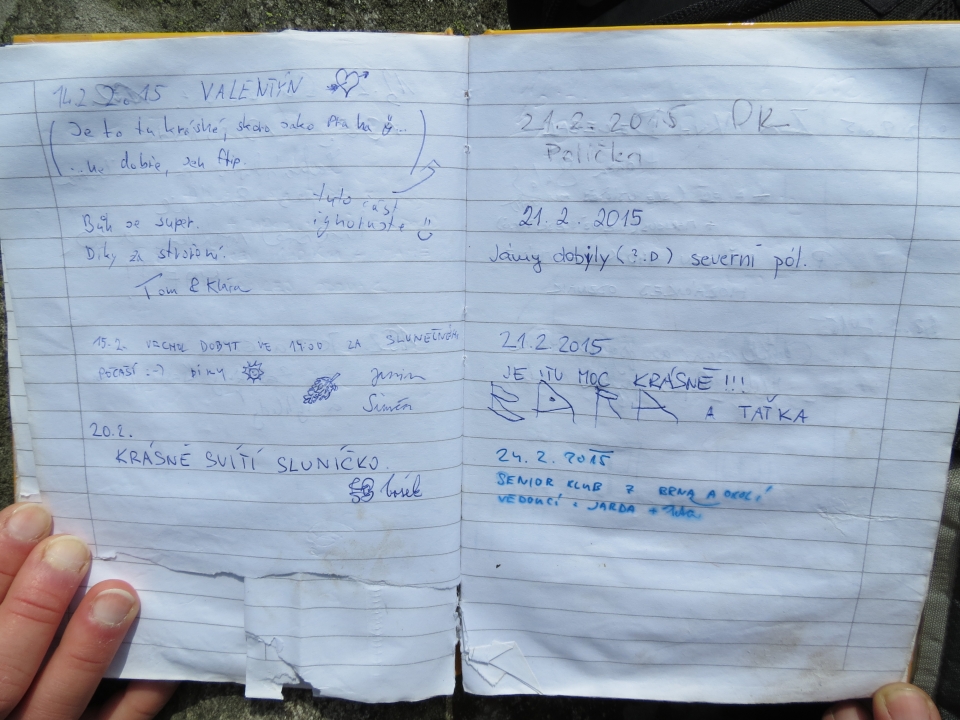 14.2 2015 VALENTÝN
Je to tu krásné, skoro jako Praha ...
... ne dobře, jen vtip.
tuto část
ignorujte
Bůh je super.
Díky za stvoření.
Tom & Klára
15.2. VRCHOL DOBYT VE 14:00 ZA SLUNEČNÉHO
POČASÍ :-) DÍKY
Šimon
20.2.
KRÁSNĚ SVÍTÍ SLUNÍČKO.
21.2. 2015 DK
Polička
21.2. 2015
Jámy dobyly (?.D) severní pól.
21.2 2015
JE TU MOC KRÁSNĚ !!!
A TAŤKA
24.2. 2015
SENIOR KLUB Z BRNA A OKOLÍ
VEDOUCÍ : JARDA +